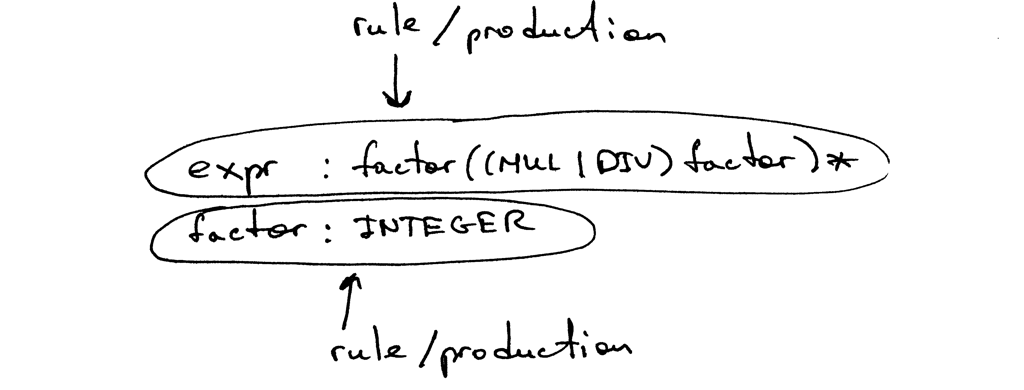 rule/production
expr : factor((MUL | DIV) factor)*
factor: INTEGER
rule/production